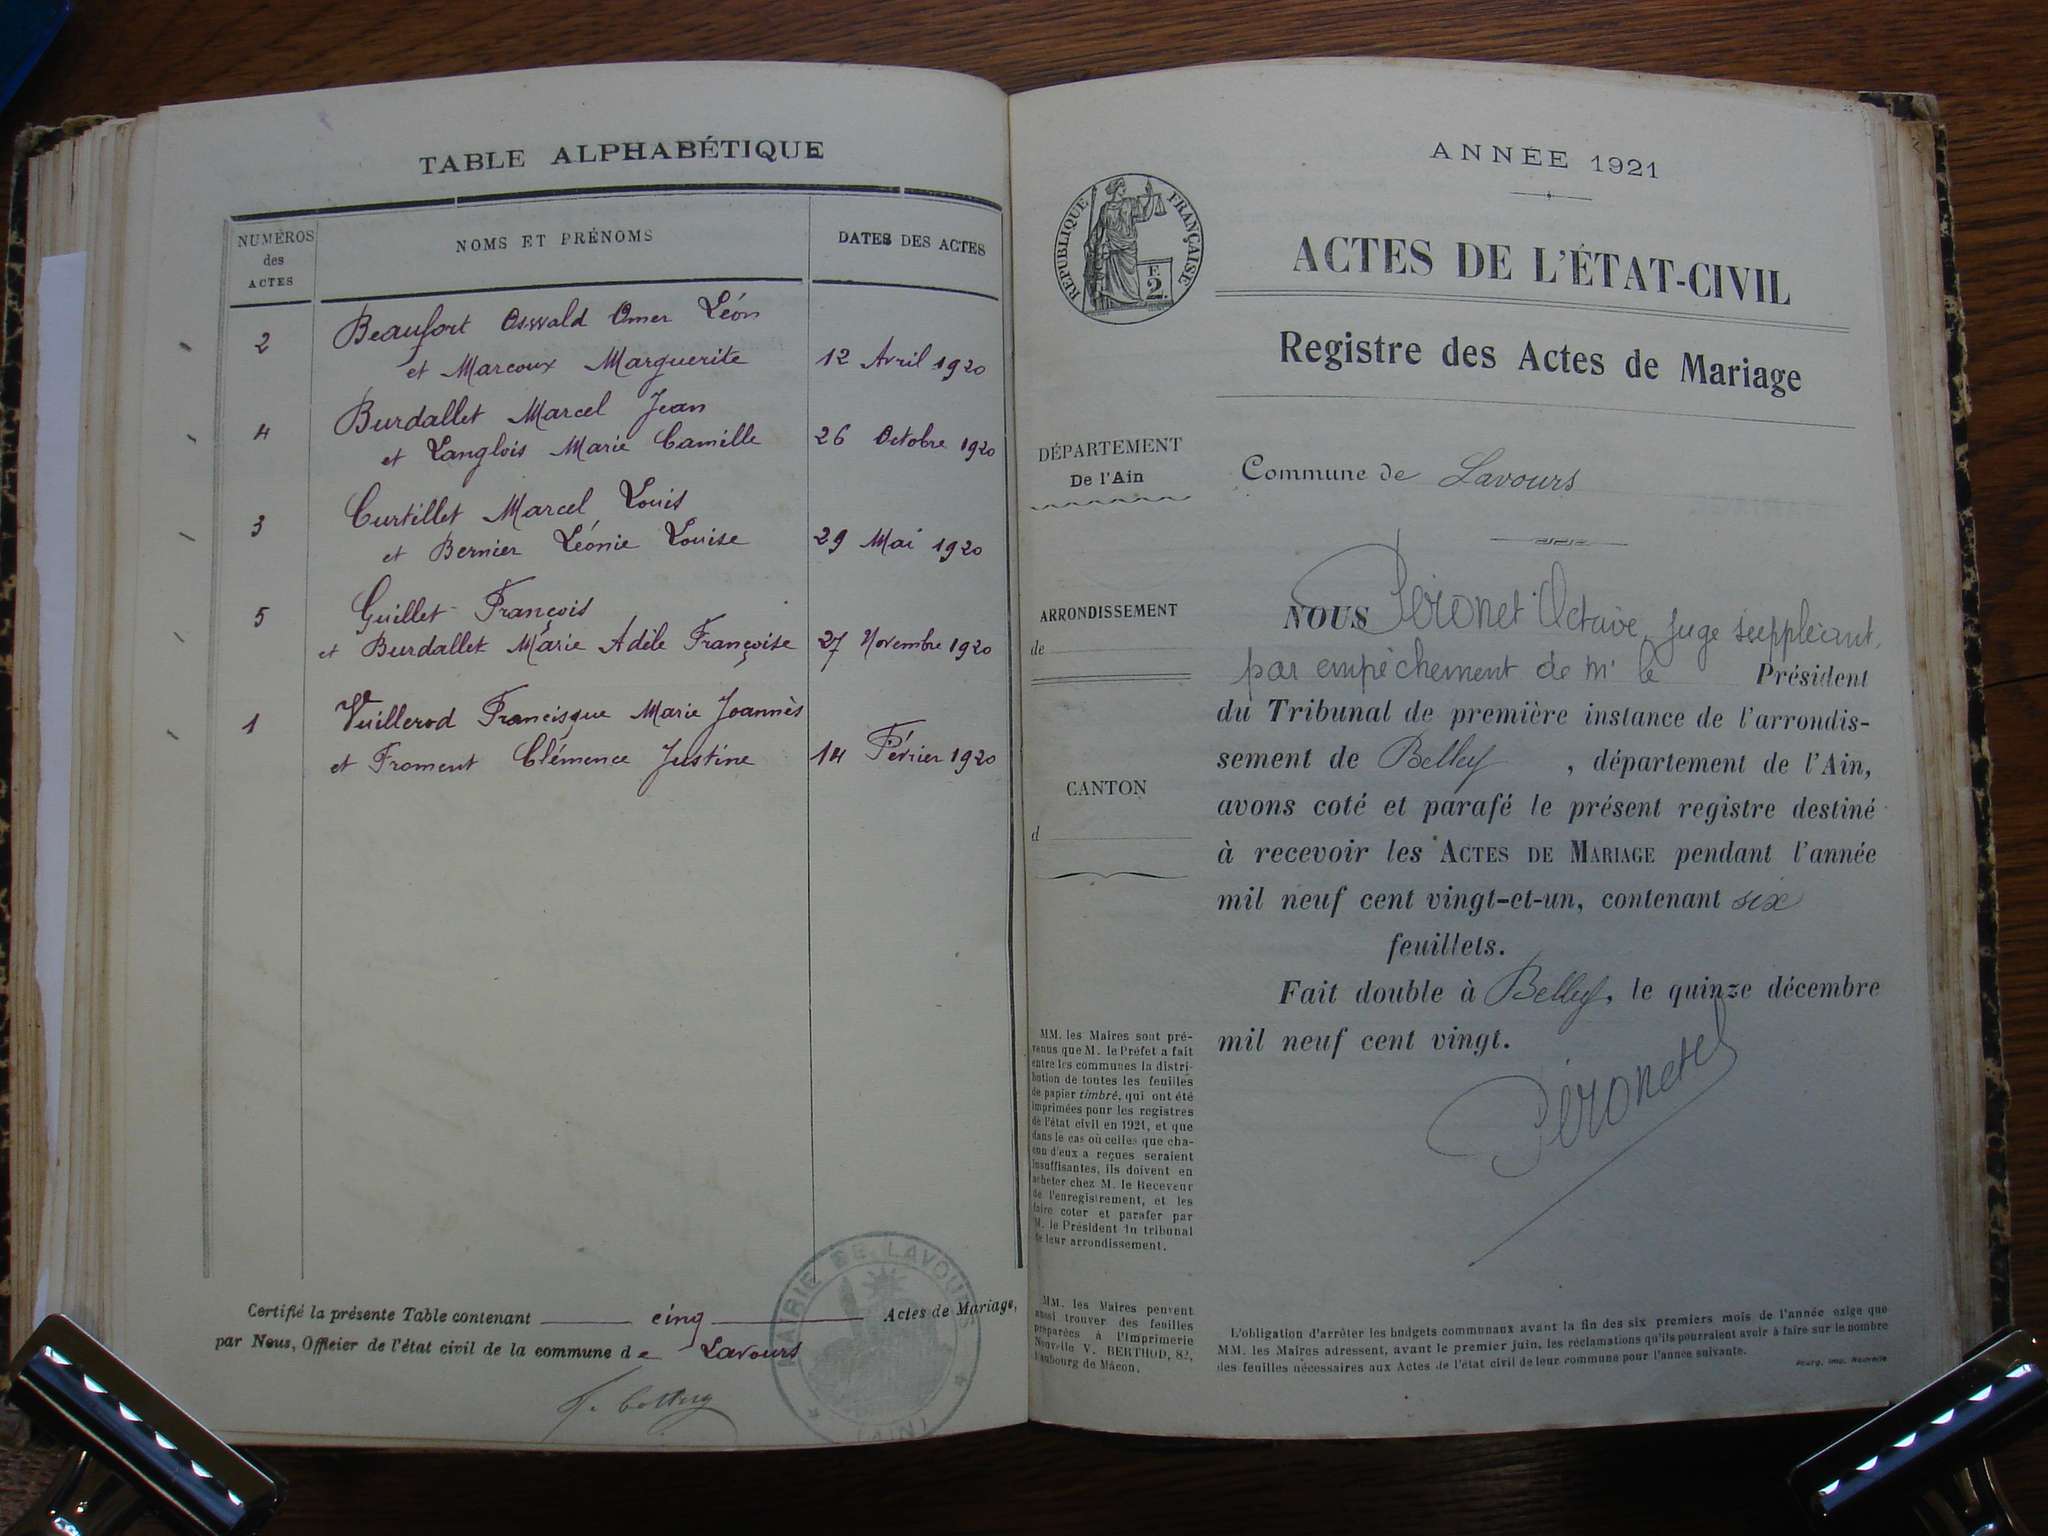 TABLE ALPHABÉTIQUE
NUMÉROS
des
ACTES
NOMS ET PRÉNOMS
DATES DES ACTES
2
Beaufort Oswald Omer Léon
et Marcoux Marguerite
12 Avril 1920
4
Burdallet Marcel Jean
et Langlois Marie Camille
26 Octobre 1920
3
Curtillet Marcel Louis
et Bernier Léonie Louise
29 Mai 1920
5
Guillet François
et Burdallet Marie Adèle Françoise
27 Novembre 1920
1
Vuillerod Francisque Marie Joannès
et Froment Clémence Justine
14 Février 1920
Certifié la présente Table contenant cinq Actes de Mariage,
par Nous, Officier de l'état civil de la commune de Lavours
MAIRIE DE LAVOURS
(AIN)
ANNÉE 1921
RÉPUBLIQUE FRANÇAISE
F.
2.
ACTES DE L'ÉTAT-CIVIL
Registre des Actes de Mariage
DÉPARTEMENT
De l'Ain
ARRONDISSEMENT
de
CANTON
d
MM. les Maires sont pré-
venus que M. le Préfet a fait
entre les communes la distri-
bution de toutes les feuilles
de papier timbré, qui ont été
imprimées pour les registres
de l'état civil en 1921, et que
dans le cas où celles que cha-
cun d'eux a reçues seraient
insuffisantes, ils doivent en
acheter chez M. le Receveur
de l'enregistrement, et les
faire coter et parafer par
M. le Président du tribunal
de leur arrondissement.
MM. les Maires peuvent
aussi trouver des feuilles
préparées à l'Imprimerie
Nouvelle V. BERTHOD, 82,
faubourg de Mâcon.
Commune de Lavours
NOUS Péronet Octave, juge suppléant,
par empêchement de Mr le Président
du Tribunal de première instance de l'arrondis-
sement de Belley, département de l'Ain,
avons coté et parafé le présent registre destiné
à recevoir les ACTES DE MARIAGE pendant l'année
mil neuf cent vingt-et-un, contenant six
feuillets.
Fait double à Belley, le quinze décembre
mil neuf cent vingt.
Péronet
L'obligation d'arrêter les budgets communaux avant la fin des six premiers mois de l'année exige que
MM. les Maires adressent, avant le premier juin, les réclamations qu'ils pourraient avoir à faire sur le nombre
des feuilles nécessaires aux Actes de l'état civil de leur commune pour l'année suivante.
Bourg, Imp. Nouvelle